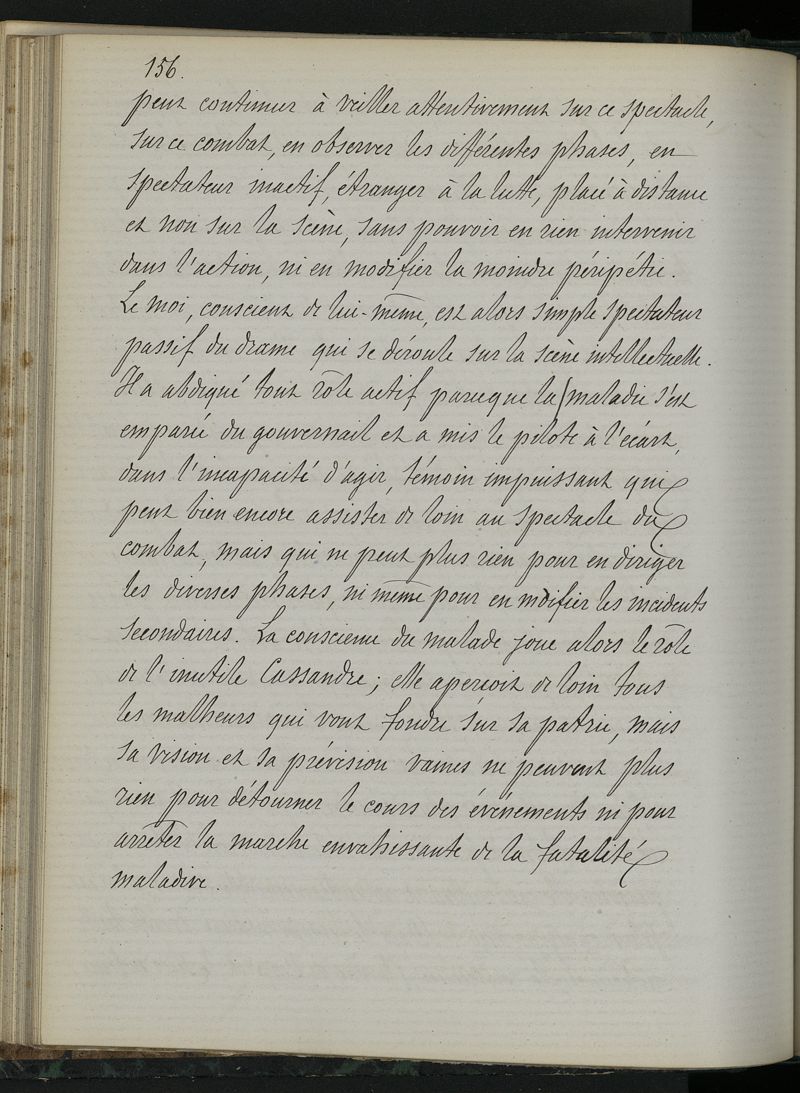 156.
peut continuer à veiller attentivement sur ce spectacle,
sur ce combat, en observer les différentes phases, en
spectateur inactif, étranger à la lutte, placé à distance
et non sur la scène, sans pouvoir en rien intervenir
dans l'action, ni en modifier la moindre péripétie.
Le moi, conscient de lui-même, est alors simple spectateur
passif du drame qui se déroule sur la scène intellectuelle.
Il a abdiqué tout rôle actif parceque la maladie s'est
emparée du gouvernail et a mis le pilote à l'écart,
dans l'incapacité d'agir, témoin impuissant qui
peut bien encore assister de loin au spectacle du
combat, mais qui ne peut plus rien pour en diriger
les diverses phases, ni même pour en modifier les incidents
secondaires. La conscience du malade joue alors le rôle
de l'inutile Cassandre; elle aperçoit de loin tous
les malheurs qui vont fondre sur sa patrie, mais
sa vision et sa prévision vaines ne peuvent plus
rien pour détourner le cours des événements ni pour
arrêter la marche envahissante de la fatalité
maladive.